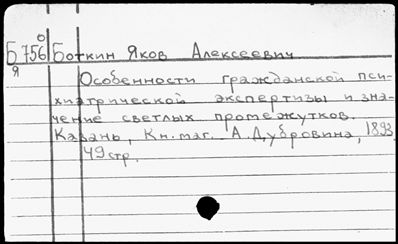 Б 756 Боткин Яков Алексеевич
Я
Особенности гражданской пси-
хиатрической экспертизы и зна-
чение светлых промежутков.
Казань, Кн. маг. А. Дубровина, 1893
49 стр.